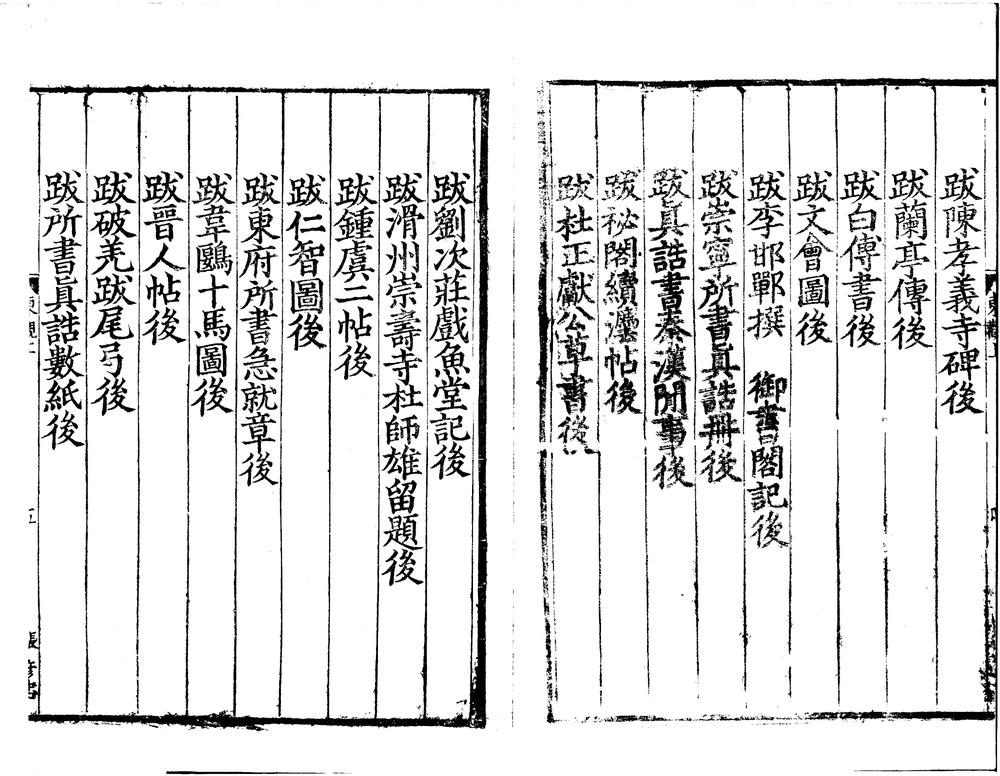 跋陳孝義寺碑後
跋蘭亭傳後
跋白傅書後
跋文會圖後
跋李邯鄲撰　御書閣記後
跋崇寧所書真誥冊後
跋真誥書秦漢間事後
跋祕閣續灋帖後
跋杜正獻公草書後
跋劉次莊戲魚堂記後
跋滑州崇壽寺杜師雄留題後
跋鍾虞二帖後
跋仁智圖後
跋東府所書急就章後
跋韋鷗十馬圖後
跋晉人帖後
跋破羌跋尾弓後
跋所書真誥數紙後
五